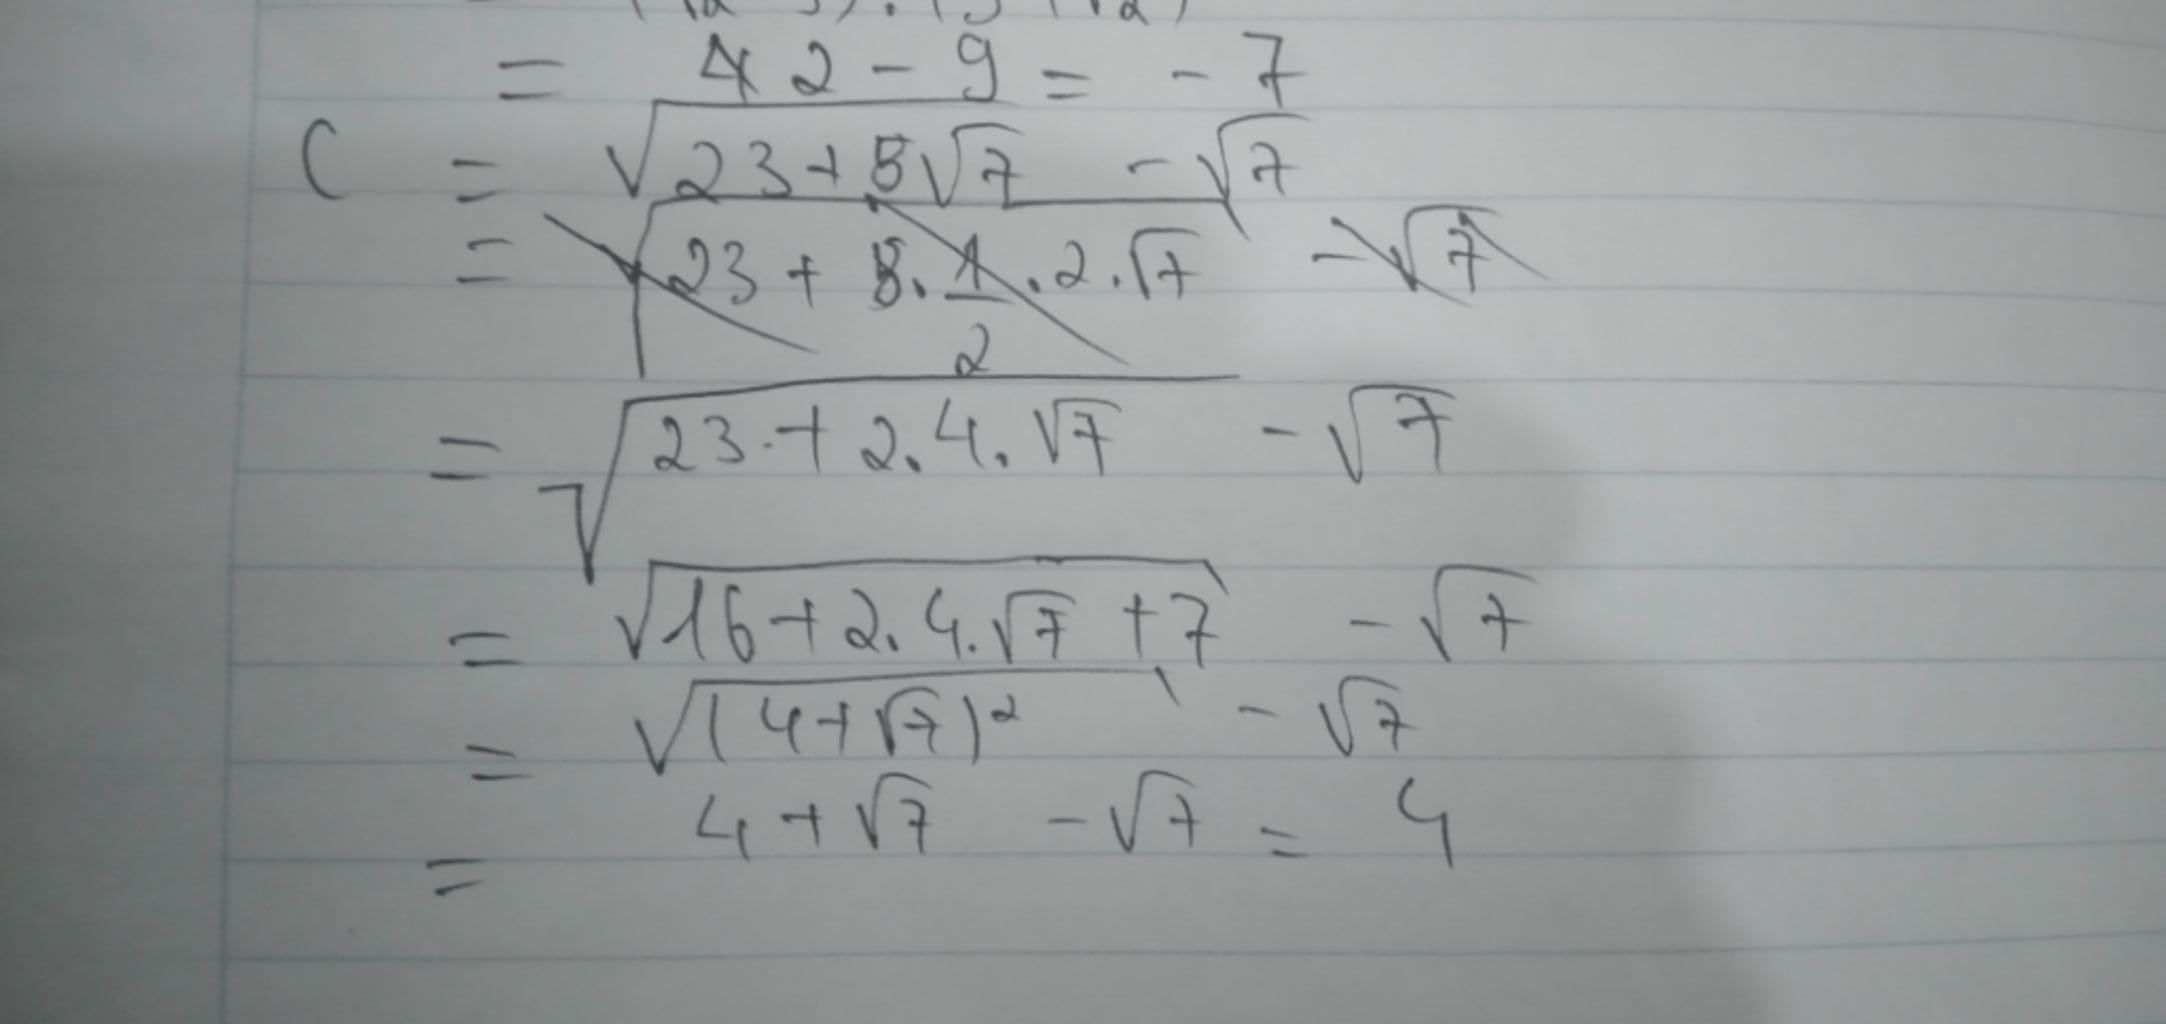 = 2 - 9 = - 7
C = √(23 + 8√7) - √7
= √(23 + 8 . 1/2 . 2 . √7) - √7
= √(23 + 2 . 4 . √7) - √7
= √(16 + 2 . 4 . √7 + 7) - √7
= √((4 + √7)²) - √7
= 4 + √7 - √7 = 4